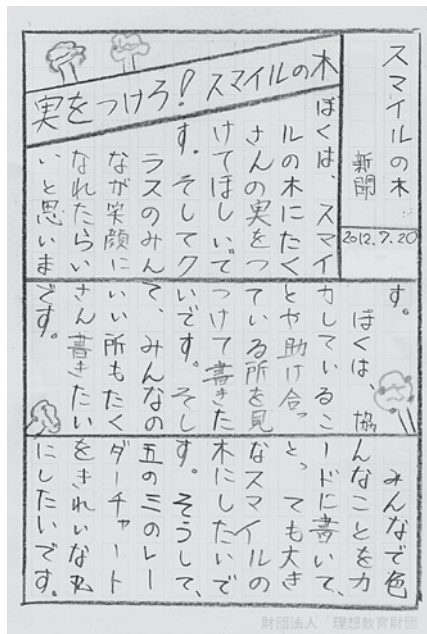 スマイルの木
新聞
2012.7.20
実をつけろ!スマイルの木
ぼくは、スマイ
ルの木にたく
さんの実をつ
けてほしいで
す。そしてク
ラスのみん
なが笑顔に
なれたらい
いと思いま
す。
ぼくは、協
力しているこ
とや助け合っ
ている所を見
つけて書きた
いです。そし
て、みんなの
いい所もたく
さん書きたい
です。
みんなで色
んなことをカ
ードに書いて、
とっても大き
なスマイルの
木にしたいで
す。そうして、
五の三のレー
ダーチャート
をきれいな丸
にしたいです。
財団法人 理想教育財団